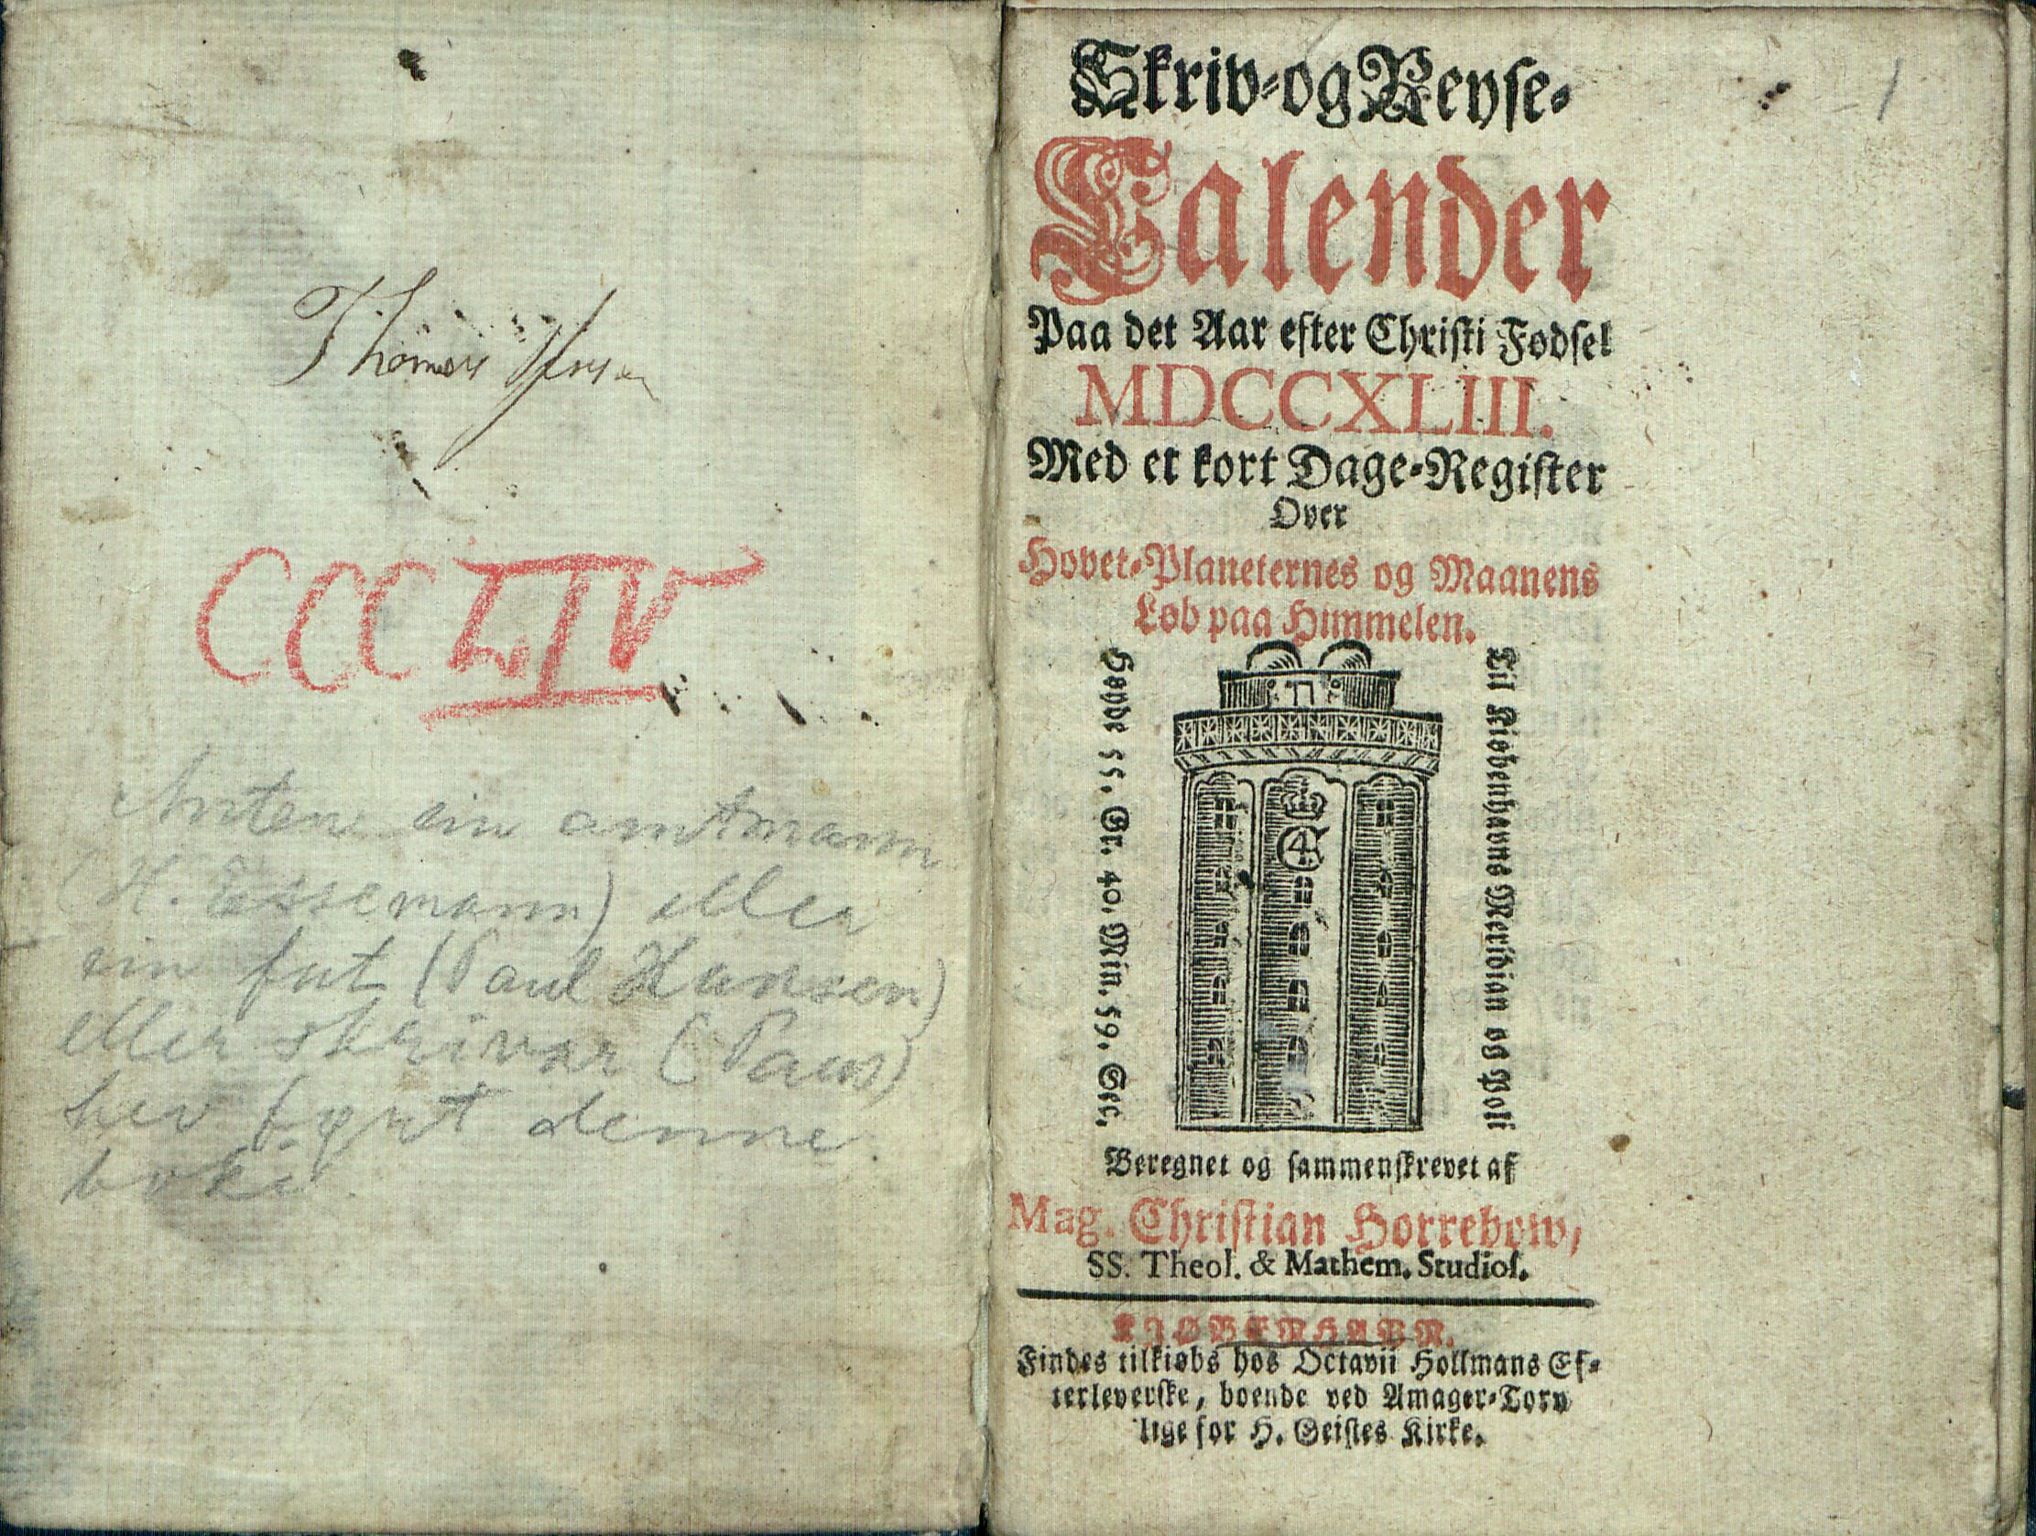 Thomas
CCCLIV
Anten ein amtmann
(H. Essemann) eller
ein fut (Paul Hansen)
eller skrivar (Paus)
hev ført denne
boki.
1
Skriv-og Reyse-
Calender
Paa det Aar efter Christi Fødsel
MDCCXLIII.
Med et kort Dage-Register
Over
Hovet-Planeternes og Maanens
Løb paa Himmelen.
Til Kiøbenhavns Meridian og Poli
Høyde 55. Gr. 40. Min. 59. Sec.
C4
Beregnet og sammenskrevet af
Mag. Christian Horrebow,
SS. Theol. & Mathem. Studios.
KIØBENHAVN.
Findes tilkiøbs hos Octavii Hollmans Ef-
terleverske, boende ved Amager-Torv
lige for H. Geistes Kirke.